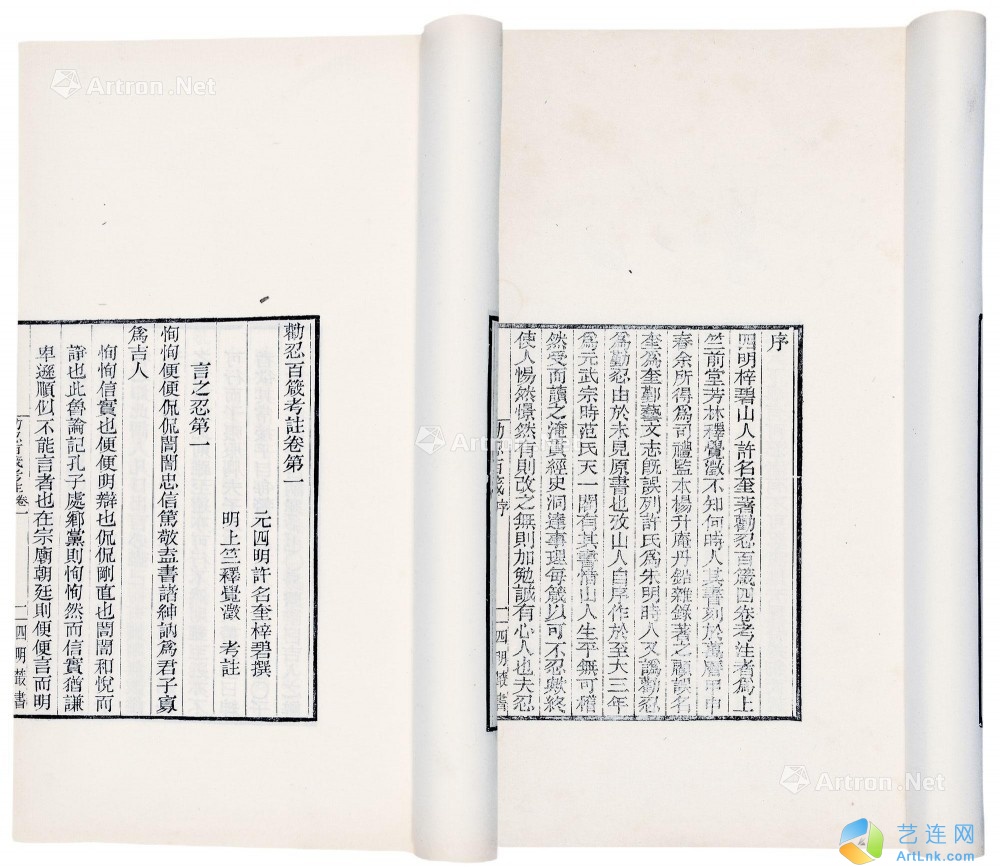 序
四明梓碧山人許名奎著勸忍百箴四卷考注者爲上
竺前堂芳林釋覺澂不知何時人其書刻於萬曆甲申
春余所得爲司禮監本楊升庵丹鉛雜錄著之顧誤名
奎爲奎鄞藝文志旣誤列許氏爲宋明時人又譌勸忍
爲勤忍由於未見原書也攷山人自序作於至大三年
爲元武宗時范氏天一閣有其書惜山人生平無可攷
然受而讀之淹貫經史洞達事理每箴以可不忍歟終
使人惕然憬然有則改之無則加勉誠有心人也夫忍
勸忍百箴序
一
四明叢書
勸忍百箴考註卷第一
元四明許名奎梓碧撰
明上竺釋覺澂 考註
言之忍第一
恂恂便便侃侃誾誾忠信篤敬盍書諸紳訥爲君子寡
爲吉人
恂恂信實也便便明辯也侃侃剛直也誾誾和悅而
諍也此魯論記孔子處鄉黨則恂恂然而信實猶謙
卑遜順似不能言者也在宗廟朝廷則便便言而明
勸忍百箴考註卷一
一
四明叢書
Artron.Net
Artron.Net
Artron.Net
Artron.Net
艺连网
ArtLnk.com